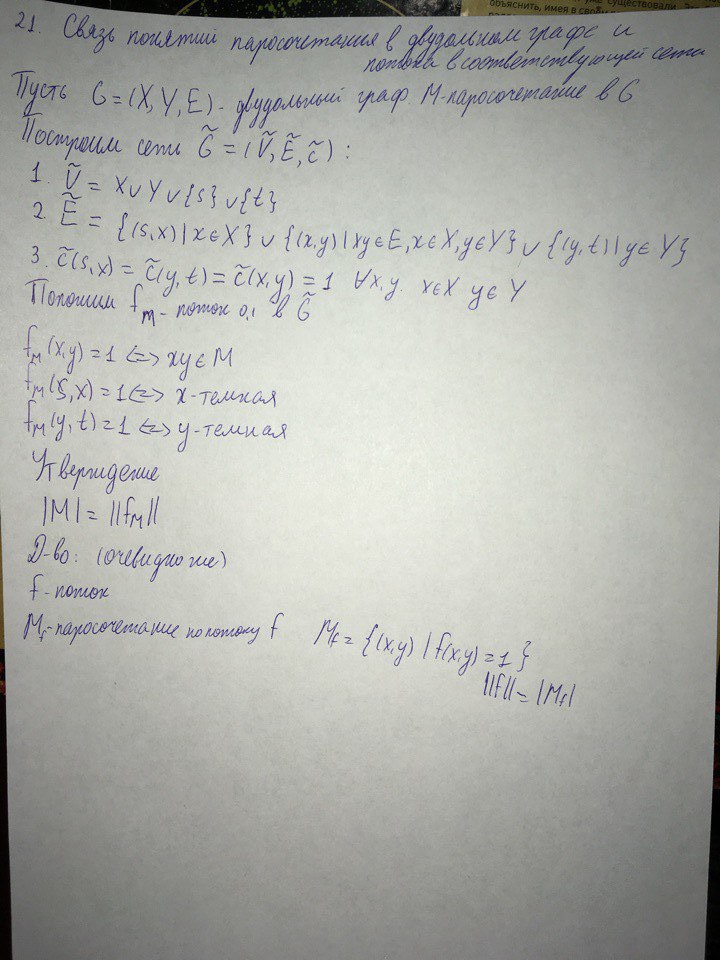 объяснить, имея в сво
существовали. З
21. Связь понятий паросочетания в двудольном графе и
потока в соответствующей сети
Пусть G = (X, Y, E) - двудольный граф M-паросочетание в G
Построим сеть G̃ = (Ṽ, Ẽ, c̃) :
1. Ṽ = X ∪ Y ∪ {s} ∪ {t}
2. Ẽ = {(s, x) | x ∈ X} ∪ {(x, y) | xy ∈ E, x ∈ X, y ∈ Y} ∪ {(y, t) | y ∈ Y}
3. c̃(s, x) = c̃(y, t) = c̃(x, y) = 1 ∀x, y. x ∈ X y ∈ Y
Положим f_M - поток 0,1 в G̃
f_M(x, y) = 1 <=> xy ∈ M
f_M(s, x) = 1 <=> x - темная
f_M(y, t) = 1 <=> y - темная
Утверждение
|M| = ||f_M||
Д-во: (очевидно же)
f - поток
M_f - паросочетание по потоку f M_f = {(x, y) | f(x, y) = 1}
||f|| = |M_f|